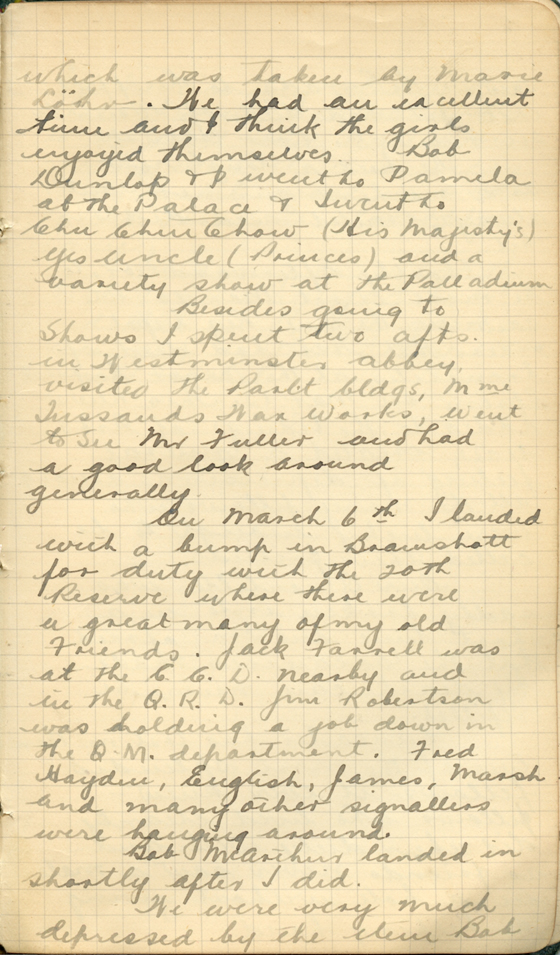 which was taken by Marie
Löhr. We had an excellent
time and I think the girls
enjoyed themselves. Bob
Dunlop & I went to Pamela
at the Palace & I went to
Chu Chin Chow (His Majesty's)
Yes Uncle (Princes) and a
variety show at the Palladium
Besides going to
shows I spent two afts.
in Westminster abbey,
visited the Parlt bldgs, Mme
Tussands Wax Works, went
to see Mr Fuller and had
a good look around
generally.
On March 6th I landed
with a bump in Bramshott
for duty with the 20th
Reserve where there were
a great many of my old
Friends. Jack Farrell was
at the C. C. D. nearby and
in the Q. R. D. Jim Robertson
was holding a job down in
the Q.M. department. Fred
Hayden, English, James, Marsh
and many other signallers
were hanging around.
Bob McArthur landed in
shortly after I did.
We were very much
depressed by the item Bob